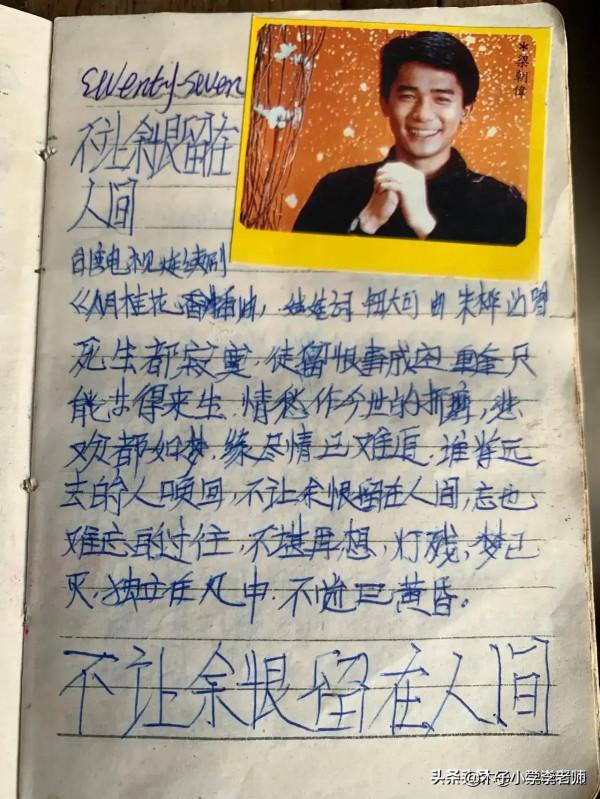 *梁朝偉
swenty-swen
不让余恨留在
人间
电视连续剧
《八月桂花香插曲，娃娃词 钮大可曲 朱桦
死生都寂寞.徒留恨事成空 重逢只
能求得来生.情愁作今世的折磨,悲
欢都如梦,缘尽情已难追.谁将远
去的人唤回,不让余恨留在人间,忘也
难忘再过往,不堪再想,灯残,梦已
灭,独立在风中.不觉已黄昏。
不让余恨留在人间
头条@木子小学李老师